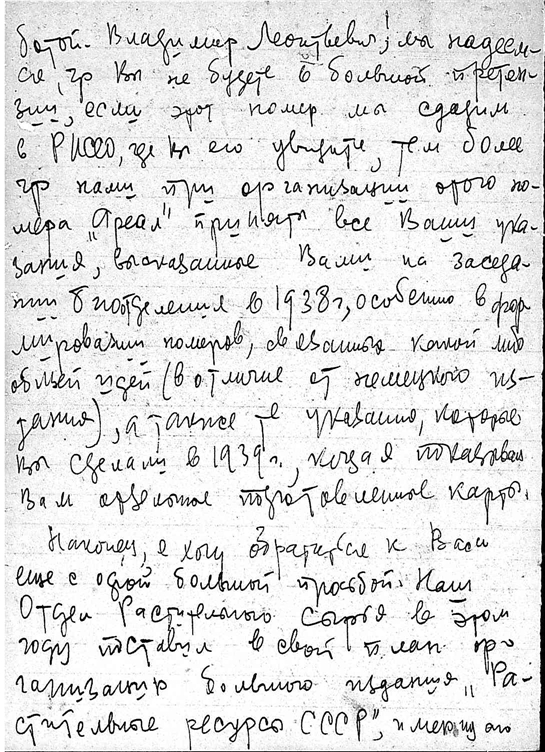 ботой. Владимир Леонтьевич, мы надеем-
ся, что Вы не будете в большой претен-
зии, если этот номер мы сдадим
в РИСО, где Вы его увидите, тем более
что нами при организации этого но-
мера "Ареал" приняты все Ваши ука-
зания, высказанные Вами на заседа-
нии биоотделения в 1938 г, особенно в фор-
мировании номеров, связанных какой либо
общей идеей (в отличие от немецкого из-
дания), а также те указания, которые
Вы сделали в 1939 г., когда я показывал
Вам отдельные подготовленные карты.
Наконец, я хочу обратиться к Вам
еще с одной большой просьбой. Наш
Отдел Растительного Сырья в этом
году поставил в свой план ор-
ганизацию большого издания "Ра-
стительные ресурсы СССР",